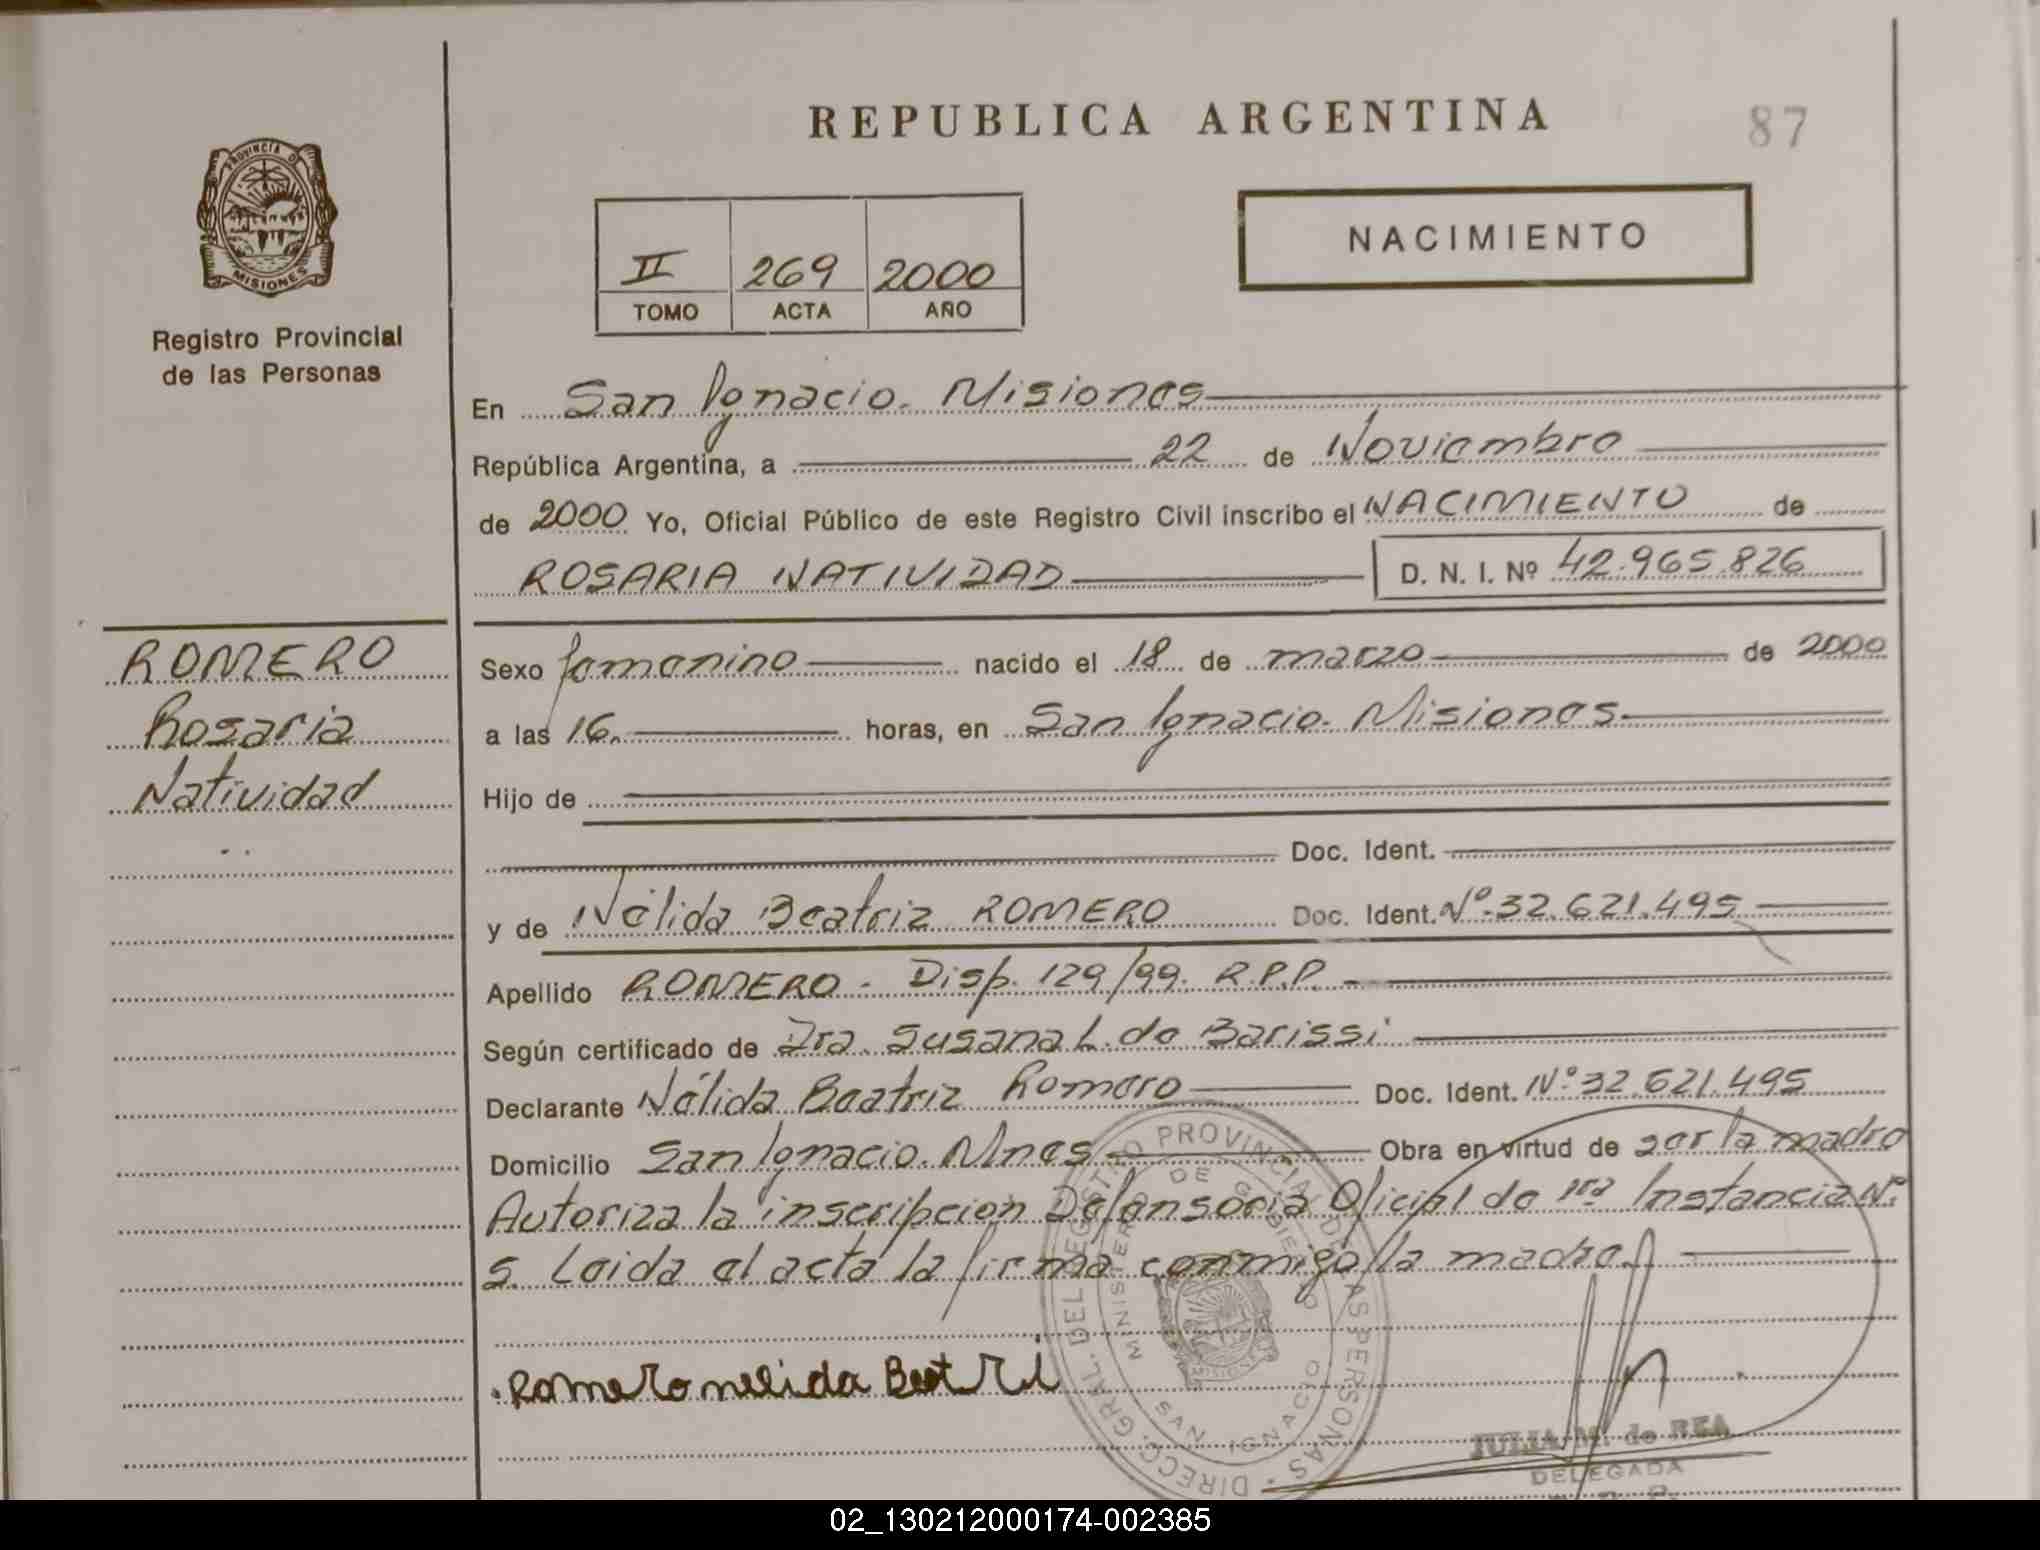 REPUBLICA ARGENTINA
87
PROVINCIA D
MISIONES
Registro Provincial
de las Personas
II 269 2000
TOMO ACTA AÑO
NACIMIENTO
En San Ignacio. Misiones
República Argentina, a 22 de Noviembre
de 2000 Yo, Oficial Público de este Registro Civil inscribo el NACIMIENTO de
ROSARIA NATIVIDAD D. N. I. Nº 42.965.826
ROMERO
Rosaria
Natividad
Sexo femenino nacido el 18 de marzo de 2000
a las 16. horas, en San Ignacio. Misiones
Hijo de
Doc. Ident.
y de Nélida Beatriz ROMERO Doc. Ident. Nº 32.621.495
Apellido ROMERO - Disp. 129/99. R.P.P.
Según certificado de Dra. Susana L. de Barissi
Declarante Nélida Beatriz Romero Doc. Ident. Nº 32.621.495
Domicilio San Ignacio. Mnes Obra en virtud de ser la madre
Autoriza la inscripcion Defensoria Oficial de 1ra Instancia Nº
5. Leida el acta la firma conmigo la madre.
Romero nelida Beatri
DIRECC. GRAL. DEL REGISTRO PROVINCIAL DE LAS PERSONAS
MINISTERIO DE GOBIERNO
SAN IGNACIO
JULIA M. de REA
DELEGADA
02_130212000174-002385